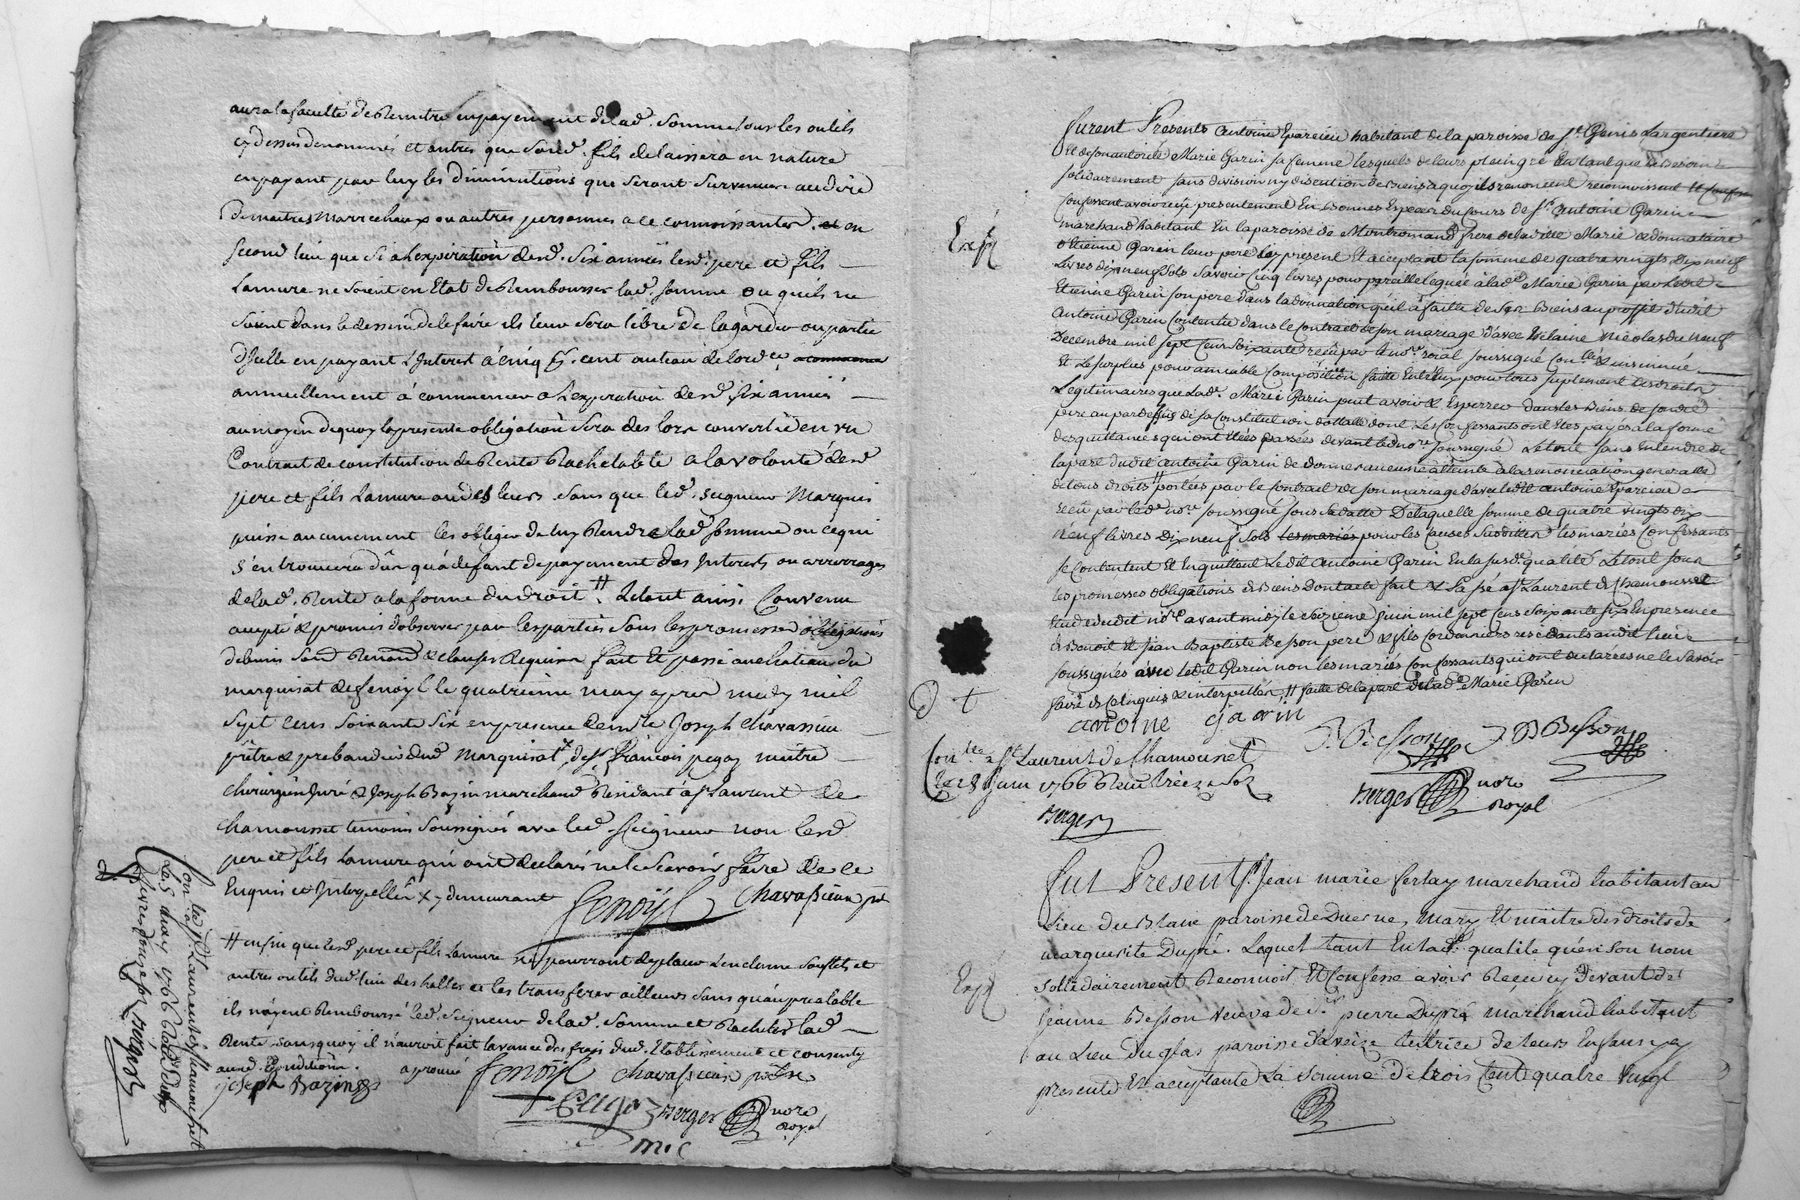 aura la faculté de Remettre en payement de lad. Somme tous les outils
cy dessus denommés et autres que sond. fils delaissera en nature
en payant par luy les diminutions que seront survenues au dire
de maitres marrechaux ou autres personnes a ce connoissantes. et en
second lieu que si a l'expiration desd. Six années lesd. pere et fils
Lamure ne soient en Etat de Rembourser lad. somme ou quils ne
soient dans le dessein de le faire ils leur sera libre de la garder ou partie
d'Icelle en payant l'Interest à cinq pr. cent au taux de lord.ce
annuellement à commencer a l'expiration desd. six années
au moyen de quoy la presente obligation sera des lors convertie en un
Contrat de constitution de Rente Rachetable a la volonté desd.
pere et fils Lamure ou des leurs sans que led. seigneur Marquis
puisse aucunement les obliger de luy Rendre lad. somme ou ce qui
s'en trouvera dû qu'a défaut de payement des Interests ou arrerrages
de lad. Rente a la forme du droit. # Le tout ainsi Convenu
accepté & promis d'observer par les parties sous les promesses obligations
de biens Soud. Renond. & clauses Requises fait Et passé au chateau du
marquisat de fenoyl le quatrieme may apres midy mil
sept cens soixante six en presence de mre Joseph Chavassieu
prêtre & prebandier dud. Marquisat, de Sr. François pegay maitre
chirurgien juré & Joseph Bazin marchand Residant a St Laurent de
chamousset temoins soussignés avec led. seigneur non lesd.
pere et fils Lamure qui ont declarés ne le Scavoir faire de ce
Enquis et Interpellés x y demeurant fenoÿl Chavassieu ptre
# enfin que lesd. pere et fils Lamure ne pourront deplacer l'enclume soufflets et
autres outils dud. lieu des halles et les transferer ailleurs sans qu'au prealable
ils n'ayent Remboursé led. Seigneur de lad. somme et Racheter lad.
Rente sans quoy il n'auroit fait lavance des frais dud. Etablissement et consenty
aud. Conditions. aprouvé fenoÿl Chavassieu prêtre
joseph Bazin
Berger nore
royal
Con.lé a St. Laurent de chamousset
le 5 may 1766 Reçu
Berger
Exp.
furent Presents antoine Eparcieu habitant de la paroisse de St. Genis Largentiere
Et de son autorité Marie Garin sa femme lesquels de leurs plein gré En tant que de Besoin
solidairement sans division ny discution de biens a quoy ils renoncent reconnoissent
Confessent avoir reçu presentement En Bonnes Especes du Cours de Sr. Antoine Garin
marchand habitant En la paroisse de Montromand frere de laditte Marie & donnataire
d'Etienne Garin leur pere icy present Et aceptant la somme de quatre vingts dix neuf
Livres dix neuf sols savoir cinq livres pour pareille leguée a lad. Marie Garin par ledit
Etienne Garin son pere dans la donnation qu'il a faitte de ses Biens au proffit dudit
Antoine Garin Contenüe dans le Contract de son mariage d'avec Helaine Nicolas du neuf
Decembre mil sept cens soixante reçu par le nore roïal soussigné Con.llé & insinué
Et le surplus pour amiable Composition faitte Entreux pour tous suplement des droits
Legitimaires que lad. Marie Garin peut avoir & Esperrer dans les Biens de sondit
pere au par dessus de sa constitution dottalle dont Les Confessants ont étés payés a la forme
des quittances qui ont étées passées devant led. nore soussigné Le tout sans Entendre de
la part dudit antoine Garin de donner aucune atteinte a la renonciation generalle
de tous droits # portées par le Contrat de son mariage d'avec ledit antoine Eparcieu
reçu par led. nore soussigné sous sa datte De laquelle somme de quatre vingts dix
neuf livres Dix neuf sols les mariés pour les causes susdittes les mariés Confessants
se Contentent Et En quittent Ledit Antoine Garin En la susd. qualité Le tout sous
les promesses obligations de Biens Dont acte fait & Passé a St. Laurent de Chamousset
Etude dudit nore avant midy le seizieme juin mil sept cens soixante six En presence
de Benoit et Jean Baptiste Besson pere & fils cordonniers residants audit lieu
soussignés avec ledit Garin non les mariés Confessants qui ont declarés ne le savoir
faire de ce Enquis & interpellés. # faitte de la part de lad. Marie Garin
antoine garin B. Besson J B Besson
Con.llé a St. Laurent de Chamousset
le 28 juin 1766 Reçu treize sols
Berger
Berger nore
Royal
Exp.
fut Present Sr. Jean marie ferlay marchand habitant au
Lieu du Blanc paroisse de Duerne, Mary Et maitre des droits de
marguerite Dupré. Lequel tant En lad. qualité qu'en son nom
sollidairement Reconnoit Et Confesse avoir Reçu cy devant de
Jeanne Besson veuve de Sr. pierre Dupré marchand habitant
au Lieu Duglas paroisse d'aveize tuttrice de leurs Enfans icy
presente Et acceptante La somme de trois cent quatre vingt